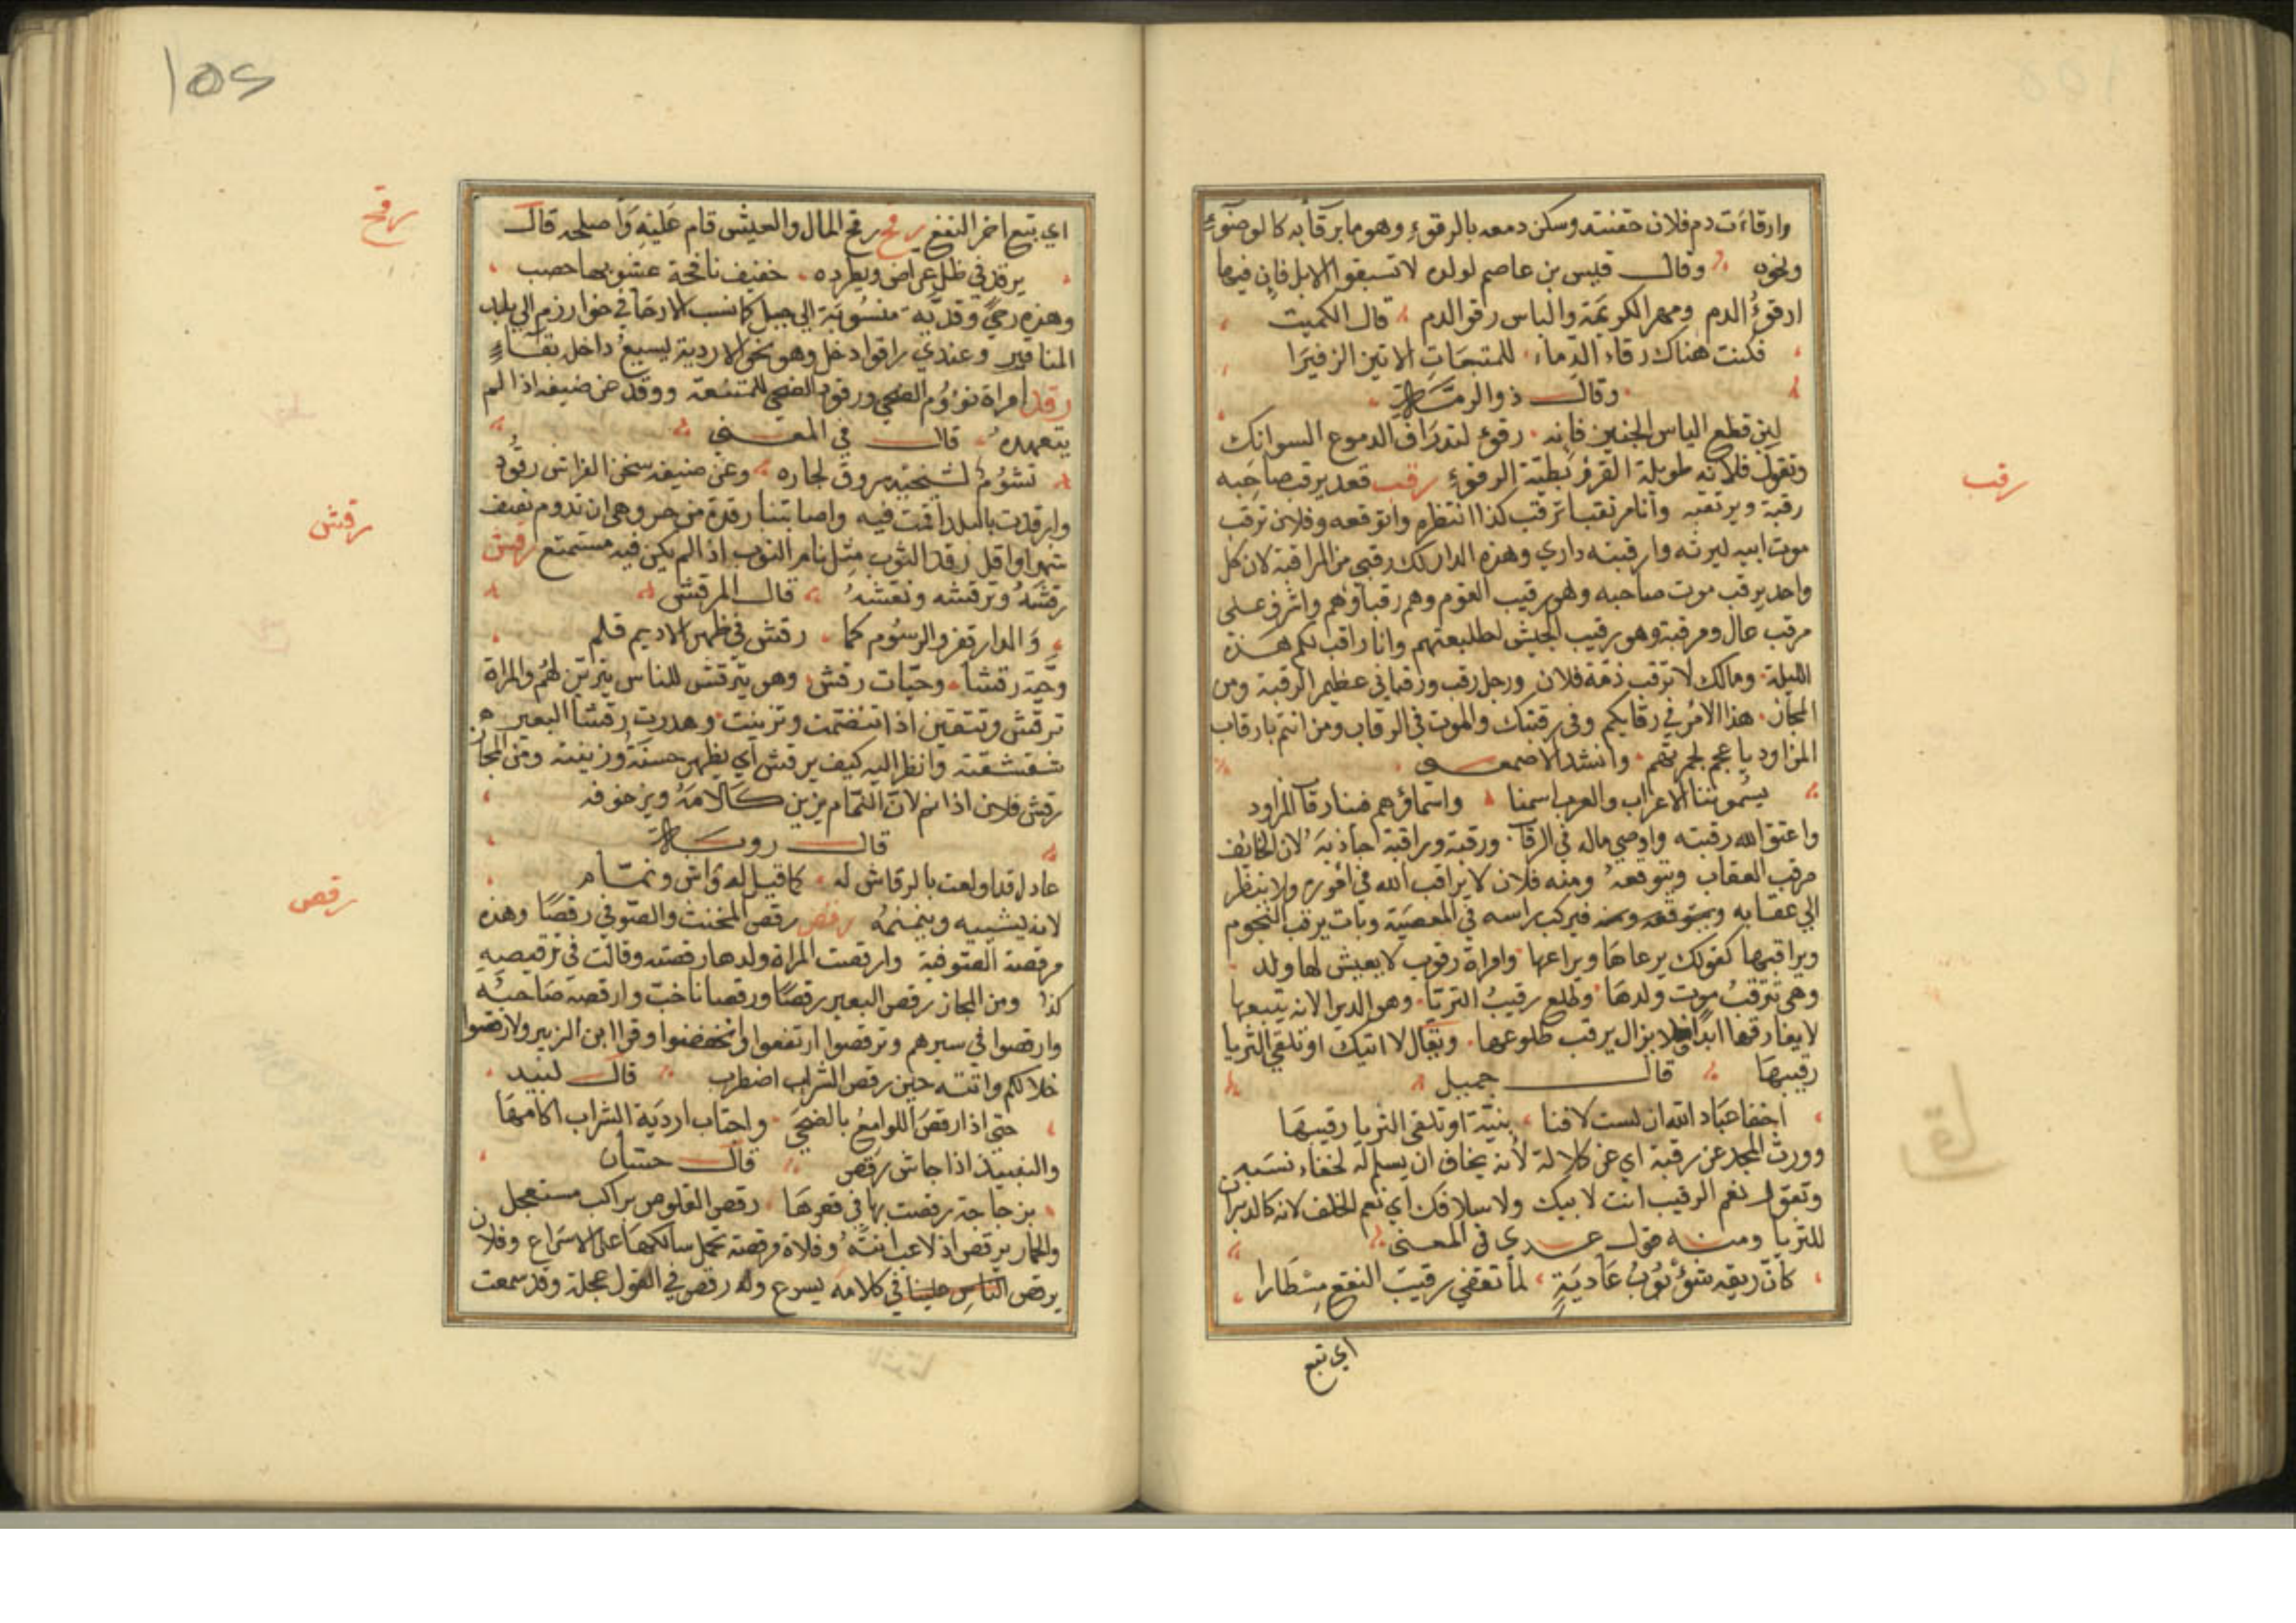 وارقاءت دم فلان حقنته وسكن دمعه بالرقوءِ وهو ما يرقأ به كالوضوءِ
ونحوه وقال قيس بن عاصم لولده لا تسبقوا الابل فان فيها
ارقوءُ الدم ومهر الكريمة والباس رقو الدم قال الكميت
فكنت هناك رقاء الدماء للمتجات الاتين الزفيرا
وقال ذو الرمة
لين قطع الياس الحنين فانه رقوء لتدراف الدموع السوافك
وتقول فلانه طويلة القرقر بطية الرقوءِ رقب قعد يرقب صاحبه
رقبة ويرتقبه وانا مرتقبا ترقب كذا انتظره واتوقعه وفلان ترقب
موت ابيه ليرثه وارقبته داري وهذه الدار لك رقبي من المراقبة لان كل
واحد يرقب موت صاحبه وهو رقيب القوم وهم رقباؤهم واشرف على
مرقب عال ومرقبة وهو رقيب الجيش لطليعتهم وانا راقب لكم هذة
الليلة ومالك لا ترقب ذمة فلان ورجل رقب ورقباني عظيم الرقبة ومن
المجاز هذا الامر في رقابكم وفي رقبتك والموت في الرقاب ومن انتم يا رقاب
المزاود يا عجم لحمرتهم وانشد الاصمعي
يسمونتنا الاعراب والعرب اسمنا واسماؤهم فينا رقاب المزاود
واعتق الله رقبته واوصي ماله في الرقاب ورقبة وراقبة حاذبه لان الخايف
مرقب العقاب ويتوقعه ومنه فلان لا يراقب الله في اموره ولا ينظر
الي عقابه فيركب راسه في المعصية وبات يرقب النجوم
ويراقبها كقولك يرعاها ويراعها وامراة رقوب لا يعيش لها ولد
وهي ترقب موت ولدها وطلع رقيب الثريا وهو الدبران لانه يتبعها
لا يفارقها ابدا فلا يزال يرقب طلوعها ويقال لا اتيك او تلقي الثريا
رقيبها قال جميل
احقا عباد الله ان لست لاقنا بثينة او تلقى الثريا رقيبها
وورث المجد عن رقبة اي عن كلالة لانه يخاف ان يسلم له لخفاء نسبه
وتقول نعم الرقيب انت لابيك ولاسلافك اي نعم الخلف لانه كالدبران
للثريا ومنه قول عدي في المعنى
كانّ ريقه شؤْبُوبُ عَادِيَةٍ لما تقفي رقيبَ النقع مُسْطَارا
اي تبع
رقب
اي يتبع اخر النقع رقح رقح المال والعيش قام عَليْهِ وَأصلحه قال
يرقد في ظل عراض ويطرده حفيف نافجة عشنوبها حصب
وهذه رحيً وقديّة منسُوبَة الي جبل كما نسب الارحا في خوارزم الي بلد
المناقير وعندي راقوا دخل وهو نحو الاردبة ليسيعُ داخل بقاءٍ
رقد امراة نؤوم الضحي ورقود الضحي للمتنعمة ورقد عن ضيفه اذا لم
يتعهده قال في المعني
نشوُمُ لسنحته سروق لجاره وعن ضيفه سخن الفراش رقُود
وارقدت بالبلد اقمت فيه واصابتنا رقدة من حر وهي ان تدوم نصف
شهر او اقل رقد الثوب مثل نام الثوب اذا لم يكن فيه مستمتع رقش
رقشهُ وترقشه ونقشهُ قال المرقش
وَالدار قفر والرسُوم كما رقش في ظهر الاديم قلم
وحيّة رقشا وحيّات رقش وهو يترقش للناس يتزين لهم والمراة
ترقش وتتقين اذا تنضمت وتزينت وهدرت رقشا البعير
شقشقته وانظر اليه كيف يرقش اي يظهر حسنهُ وزينته ومن المجاز
رقش فلان اذا نم لان النمّام يزين كلامهُ ويزخرفه
قال روبة
عاذل قد اولعت بالرقاش له كما قيل له وَاش ونمّام
لانه يشبيه وينمنمهُ رقص رقص المخنث والصّوفي رقصًا وهذه
مرقصة الصّوفية وارقصت المراة ولدها رقصته وقالت في ترقيصه
كذا ومن المجاز رقص البعير رقصًا ورقصانا خبّ وارقصه صَاحبُه
وارقصوا في سيرهم وترقصوا ارتفعوا وانخفضوا وقرا ابن الزبير ولارقصوا
خلالكم واتتة حين رقص الشراب اضطرب قال لبيد
حتي اذا رقص اللوامع بالضحي واجتاب اردية الشراب اكامها
والنبيذ اذا جاش رَقص قال حسّان
بزجاجة رقصت بها في قعرها رقص القلوص براكب مستعجل
والحمار يرقص اذ لاعب انتهُ وفلاة مرقصة تحمل سالكها على الاسراع وفلان
يرقص في كلامه يسرع وله رقص في القول عجلة وقد سمعت
رقح
رقش
رقص